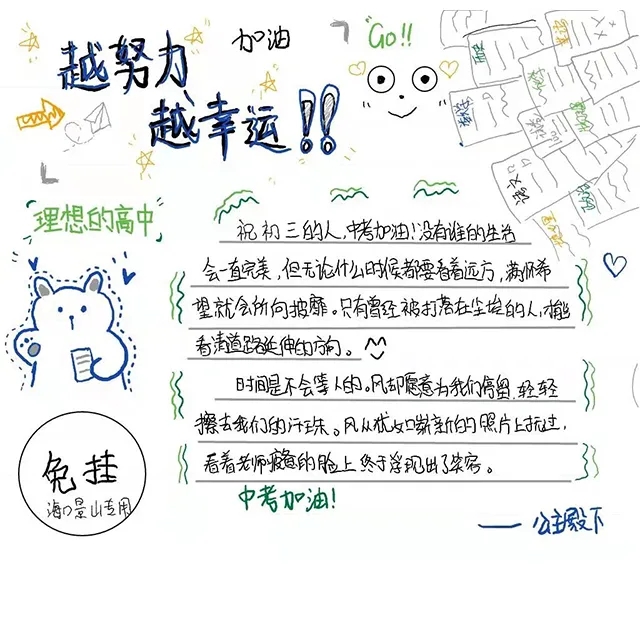 越努力
加油
Go!!
越幸运!!
理想的高中
祝初三的人,中考加油!没有谁的生活
会一直完美,但无论什么时候都要看着远方,满怀希
望就会所向披靡。只有曾经被打落在尘埃的人,才能
看清道路延伸的方向。
时间是不会等人的。风却愿意为我们停留,轻轻
擦去我们的汗珠。风从优如崭新的照片上抚过,
看着老师疲惫的脸上终于浮现出了笑容。
中考加油!
免挂
海口景山专用
——公主殿下
语文
政治